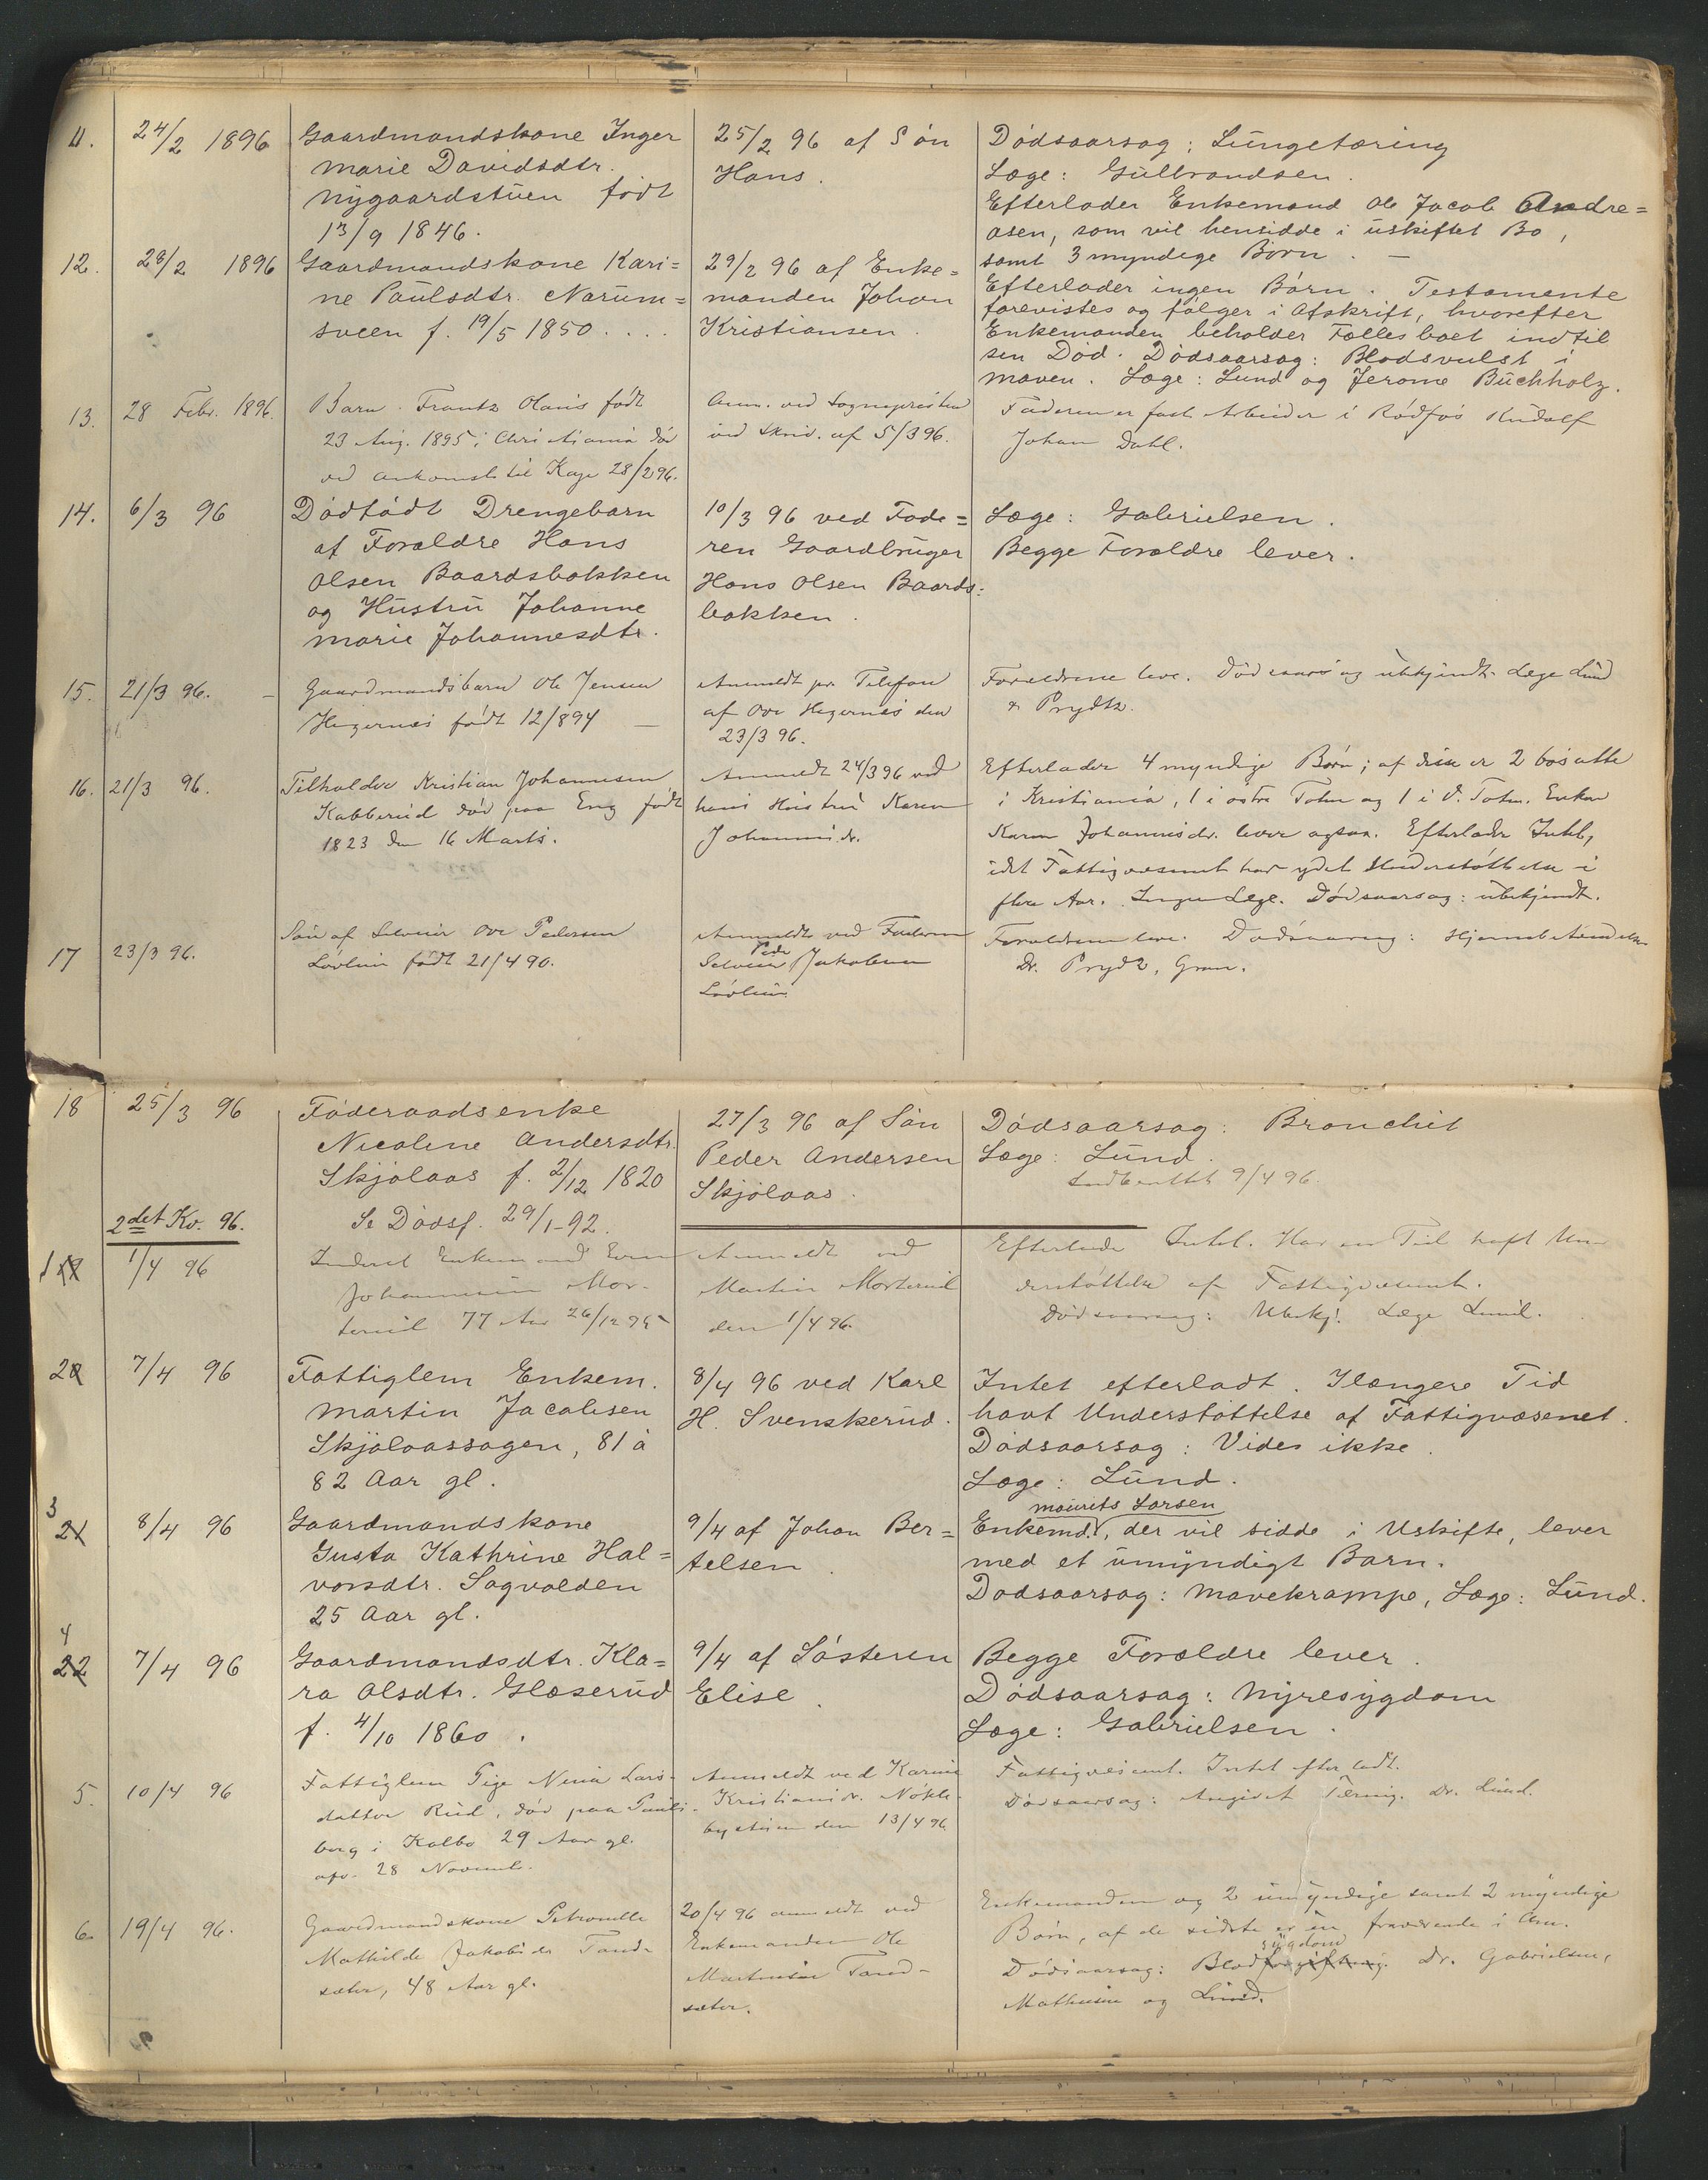 11.
24/2 1896
Gaardmandskone Inger
Marie Davidsdtr.
Nygaardstuen født
13/9 1846.
25/2 96 af Søn
Hans.
Dødsaarsag: Lungetæring
Læge: Gulbrandsen.
Efterlader Enkemand Ole Jacob Andre=
asen, som vil hensidde i uskiftet Bo,
samt 3 myndige Børn. —
12.
28/2 1896
Gaardmandskone Kari=
ne Paulsdtr. Narum=
sveen f. 19/5 1850....
29/2 96 af Enke=
manden Johan
Kristiansen.
Efterlader ingen Børn. Testamente
forevistes og følger i Afskrift, hvorefter
Enkemanden beholder Fællesboet indtil
sen Død. Dødsaarsag: Blodsvulst i
Maven. Læge: Lund og Jerome Buchholz.
13.
28 Febr. 1896.
Barn Frantz Olaus født
23 Aug. 1895 i Christiania død
ved Ankomst til Kapp 28/2 96.
Anm. ved Sognepresten
ved Skriv. af 5/3 96.
Faderen er fast Arbeider i Rødfos Rudolf
Johan Dahl.
14.
6/3 96
Dødfødt Drengebarn
af Forældre Hans
Olsen Baardsbakken
og Hustru Johanne
Marie Johannesdtr.
10/3 96 ved Fade=
ren Gaardbruger
Hans Olsen Baards=
bakken.
Læge: Gabrielsen.
Begge Forældre lever.
15.
21/3 96. —
Gaardmandsbarn Ole Jensen
Hegernæs født 12/8 94 —
Anmeldt pr. Telefon
af Ove Hegernæs den
23/3 96.
Forældrene leve. Dødsaarsag ubekjendt. Læge Lund
& Prydtz.
16.
21/3 96.
Tilholder Kristian Johannesen
Kabberud død paa Eng født
1823 den 16 Marts.
Anmeldt 24/3 96 ved
hans Hustru Karen
Johannesdr.
Efterlader 4 myndige Børn; af disse er 2 bosatte
i Kristiania, 1 i østre Toten og 1 i V. Toten. Enken
Karen Johannesdr. lever ogsaa. Efterlader Intet,
idet Fattigvæsenet har ydet Understøttelse i
flere Aar. Ingen Læge. Dødsaarsag: ubekjendt.
17
23/3 96.
Søn af Selveier Ove Pedersen
Løvlien født 21/4 90.
Anmeldt ved Faderen
Selveier Peder Jakobsen
Løvlien
Forældrene leve. Dødsaarsag: Hjernebetændelse
Dr. Prydz, Gran.
18
25/3 96
Føderaadsenke
Nicoline Andersdtr.
Skjølaas f. 2/12 1820
Se Dødsf. 29/1-92.
27/3 96 af Søn
Peder Andersen
Skjølaas.
Dødsaarsag: Bronchit
Læge: Lund.
Indberettet 9/4 96.
2det Kv. 96.
1
1/4 96
Inderst Enkemand Even
Johannesen Mor-
terud 77 Aar 26/12 95
Anmeldt ved
Martin Morterud
den 1/4 96.
Efterlader Intet. Har en Tid haft Un-
derstøttelse af Fattigvæsenet.
Dødsaarsag: Ubekj. Læge Lund.
2
7/4 96
Fattiglem Enkem.
Martin Jacobsen
Skjølaassagen, 81 à
82 Aar gl.
8/4 96 ved Karl
H. Svenskerud.
Intet efterladt. I længere Tid
havt Understøttelse af Fattigvæsenet.
Dødsaarsag: Vides ikke.
Læge: Lund.
3
21
8/4 96
Gaardmandskone
Gusta Kathrine Hal=
vorsdtr. Sagvolden
25 Aar gl.
9/4 af Johan Ber=
telsen.
Mauritz Larsen
Enkemd., der vil sidde i Uskifte, lever
med et umyndigt Barn.
Dødsaarsag: Mavekrampe, Læge: Lund.
4
22
7/4 96
Gaardmandsdtr. Kla=
ra Olsdtr. Glæserud
f. 4/10 1860.
9/4 af Søsteren
Elise.
Begge Forældre lever.
Dødsaarsag: Nyresygdom
Læge: Gabrielsen.
5.
10/4 96
Fattiglem Pige Lars-
datter Rud, død paa Pauls-
berg i Kolbo 29 Aar gl.
28 Novemb.
Anmeldt ved Karine
Kristiansdr. Nøkle-
bystuen den 13/4 96.
Fattigvæsenet. Intet efterladt.
Dødsaarsag: Angivet Tæring. Dr. Lund.
6.
19/4 96.
Gaardmandskone Petronelle
Mathilde Jakobsdr Tand-
sæter, 48 Aar gl.
20/4 96 anmeldt ved
Enkemanden Ole
Martinsen Tand-
sæter.
Enkemanden og 2 umyndige samt 2 myndige
Børn, af de sidste er en fraværende i Am.
sygdom
Dødsaarsag: Blodforgiftning. Dr. Gabrielsen,
Mathisen og Lund.